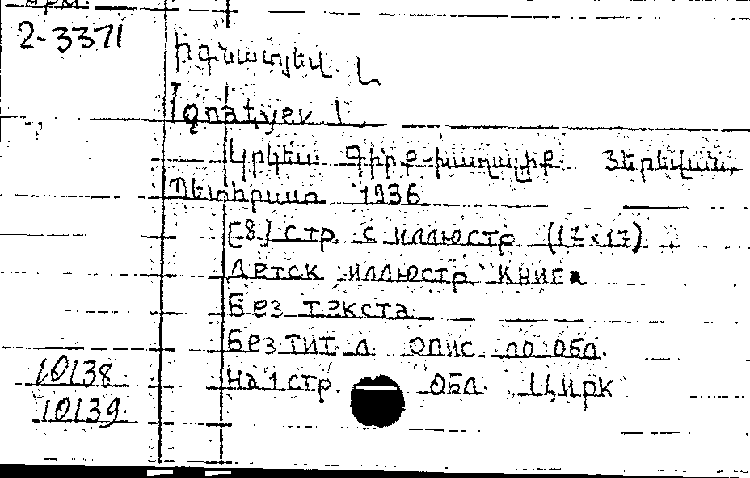 Арм.
2-3371
Իգնատյեվ. Լ
Ignatyev L.
Կրկես. Գիրք-խաղալիք Յերեվան,
Պետհրատ 1936
[8] стр. с иллюстр (17×17)
Детск иллюстр книга
Без текста
Без тит л. опис по обл.
10138 На 1 стр. обл. Цирк
10139